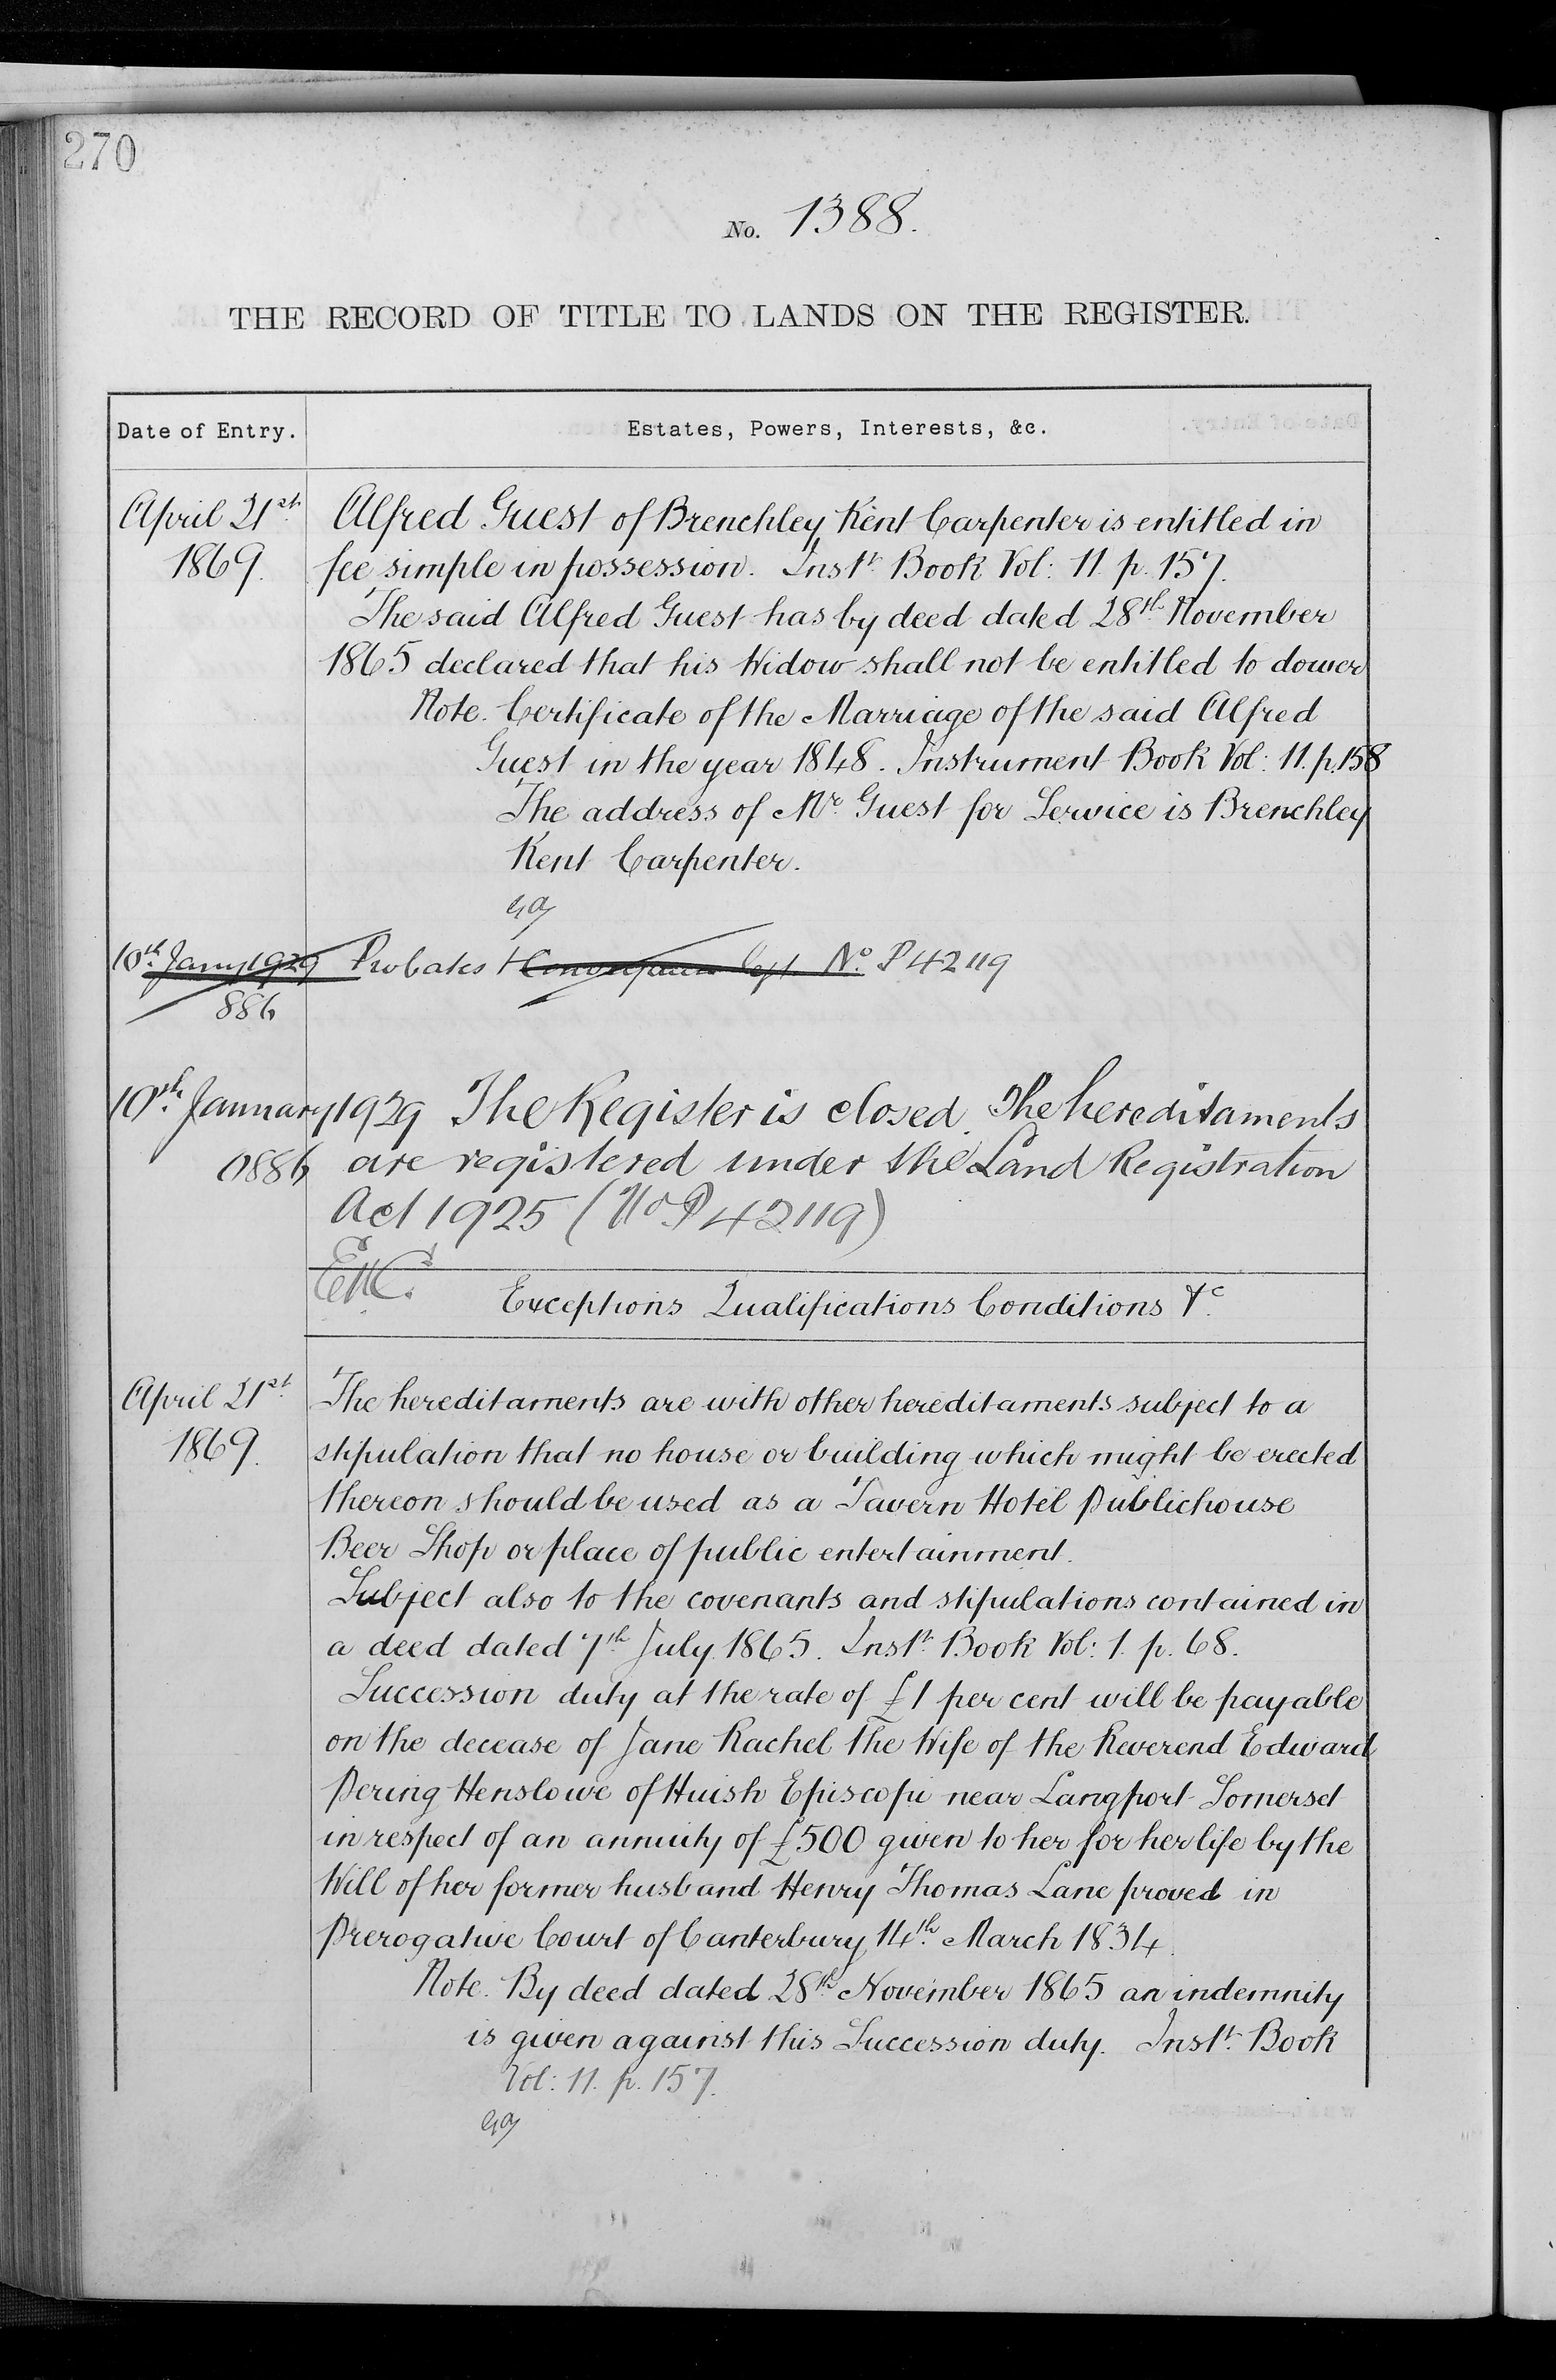 270
No. 1388.
THE RECORD OF TITLE TO LANDS ON THE REGISTER.
Date of Entry.
Estates, Powers, Interests, &c.
April 21st 1869.
Alfred Guest of Brenchley Kent Carpenter is entitled in
fee simple in possession. Instt Book Vol: 11 p. 157.
The said Alfred Guest has by deed dated 28th November
1865 declared that his Widow shall not be entitled to dower
Note. Certificate of the Marriage of the said Alfred
Guest in the year 1848. Instrument Book Vol: 11. p. 158
The address of Mr Guest for Service is Brenchley
Kent Carpenter.
10th Jany 1929 Probates No P42119
886
10th January 1929 The Register is closed. The hereditaments
0886 are registered under the Land Registration
Act 1925 (No P42119)
Exceptions Qualifications Conditions &c.
April 21st 1869.
The hereditaments are with other hereditaments subject to a
stipulation that no house or building which might be erected
thereon should be used as a Tavern Hotel Publichouse
Beer Shop or place of public entertainment.
Subject also to the covenants and stipulations contained in
a deed dated 7th July 1865. Instt Book Vol: 1. p. 68.
Succession duty at the rate of £1 per cent will be payable
on the decease of Jane Rachel the Wife of the Reverend Edward
Pering Henslowe of Huish Episcopi near Langport Somerset
in respect of an annuity of £500 given to her for her life by the
Will of her former husband Henry Thomas Lane proved in
Prerogative Court of Canterbury 14th March 1834.
Note. By deed dated 28th November 1865 an indemnity
is given against this Succession duty. Instt Book
Vol: 11. p. 157.